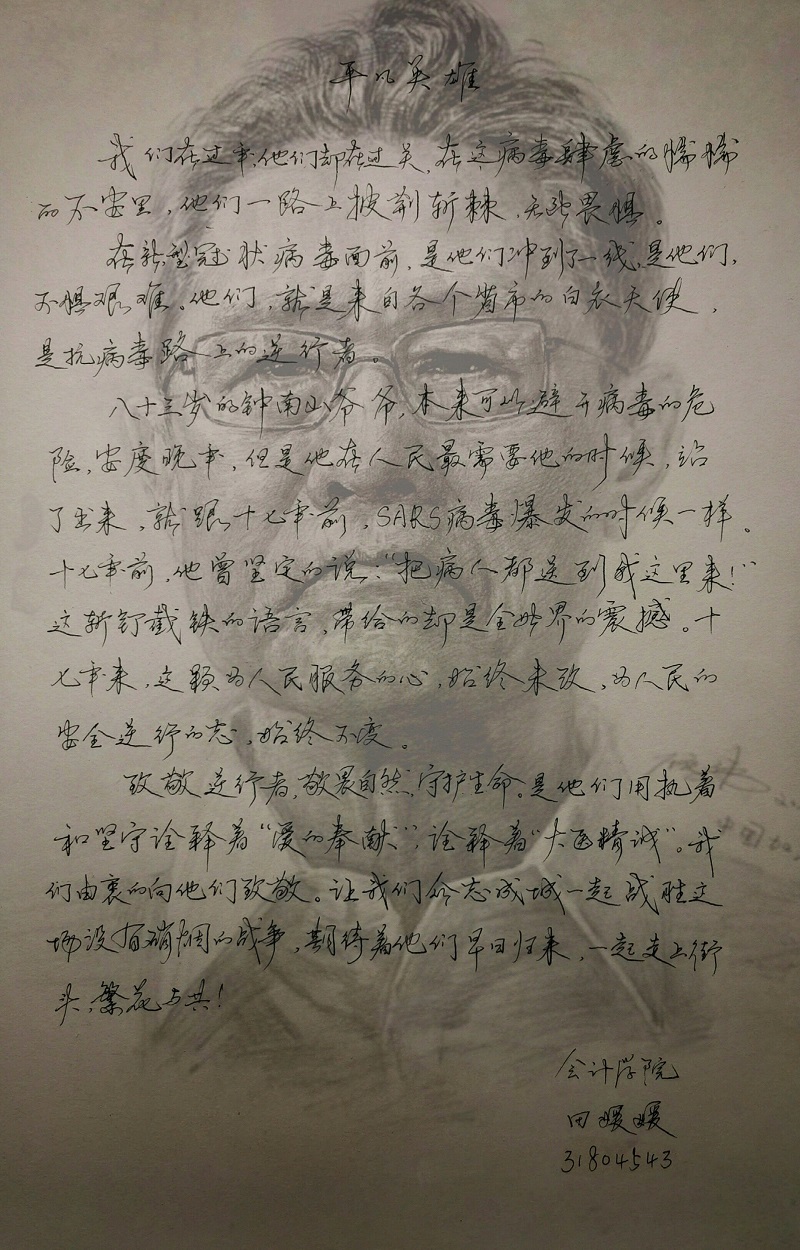 平凡英雄
我们在过年,他们却在过关,在这病毒肆虐的惴惴
而不安里,他们一路上披荆斩棘,无所畏惧。
在新型冠状病毒面前,是他们冲到了一线,是他们,
不惧艰难。他们,就是来自各个省市的白衣天使,
是抗病毒路上的逆行者。
八十三岁的钟南山爷爷,本来可以避开病毒的危
险,安度晚年,但是他在人民最需要他的时候,站
了出来,就跟十七年前,SARS病毒爆发的时候一样。
十七年前,他曾坚定的说:“把病人都送到我这里来!”
这斩钉截铁的语言,带给的却是全世界的震撼。十
七年来,这颗为人民服务的心,始终未改,为人民的
安全逆行的志,始终不变。
致敬逆行者,敬畏自然,守护生命。是他们用执着
和坚守诠释着“爱的奉献”,诠释着“大医精诚”。我
们由衷的向他们致敬。让我们众志成城一起战胜这
场没有硝烟的战争,期待着他们早日归来,一起走上街
头,繁花与共!
会计学院
田媛媛
31804543